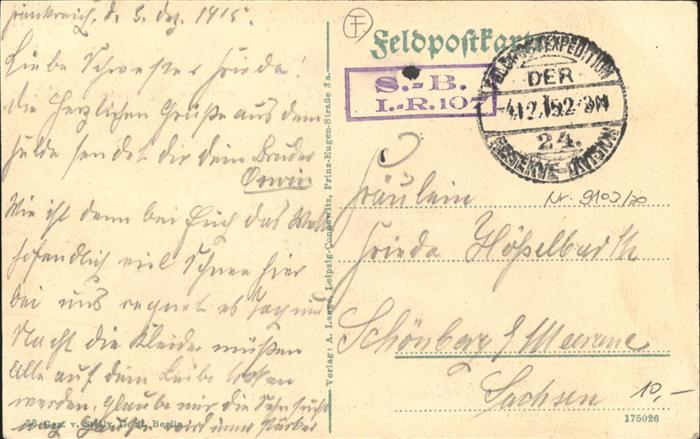 Frankreich, d. 3. Dez. 1915.
Liebe Schwester Frieda!
Die Herzlichen Grüße aus dem
Felde sendet dir dein Bruder
Erwin
Wie ist denn bei Euch das
hofendlich viel Schnee hier
bei uns regnet es Tag und
Nacht die Kleider müßen
Alle auf dem Leibe
werden, glaube mir die Sehnsucht
nach Hause wird immer stärker
36. Gen. v. Berlin.
Verlag: A. Lange, Leipzig-Connewitz, Prinz-Eugen-Straße 3a.
Feldpostkarte
S.-B.
I.-R. 107
FELDPOSTEXPEDITION
DER
4.12.15 2-3N
24.
RESERVE-DIVISION
Fräulein
Nr. 9103/20
Frieda
Schönberg b/ Meerane
Sachsen
10,-
175026